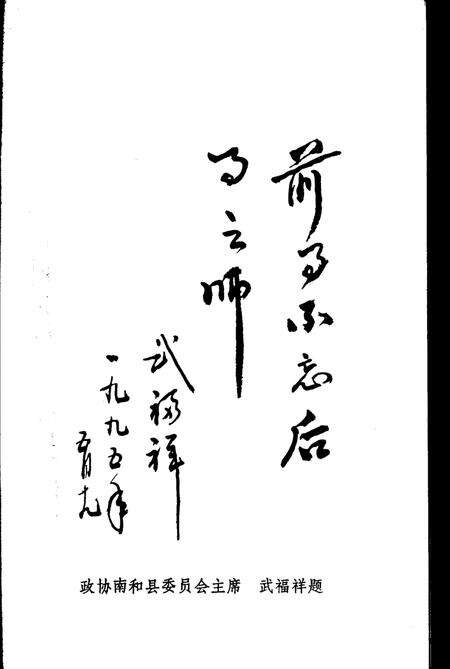 前事不忘后
事之师
武福祥
一九九五年
五月十九
政协南和县委员会主席 武福祥题